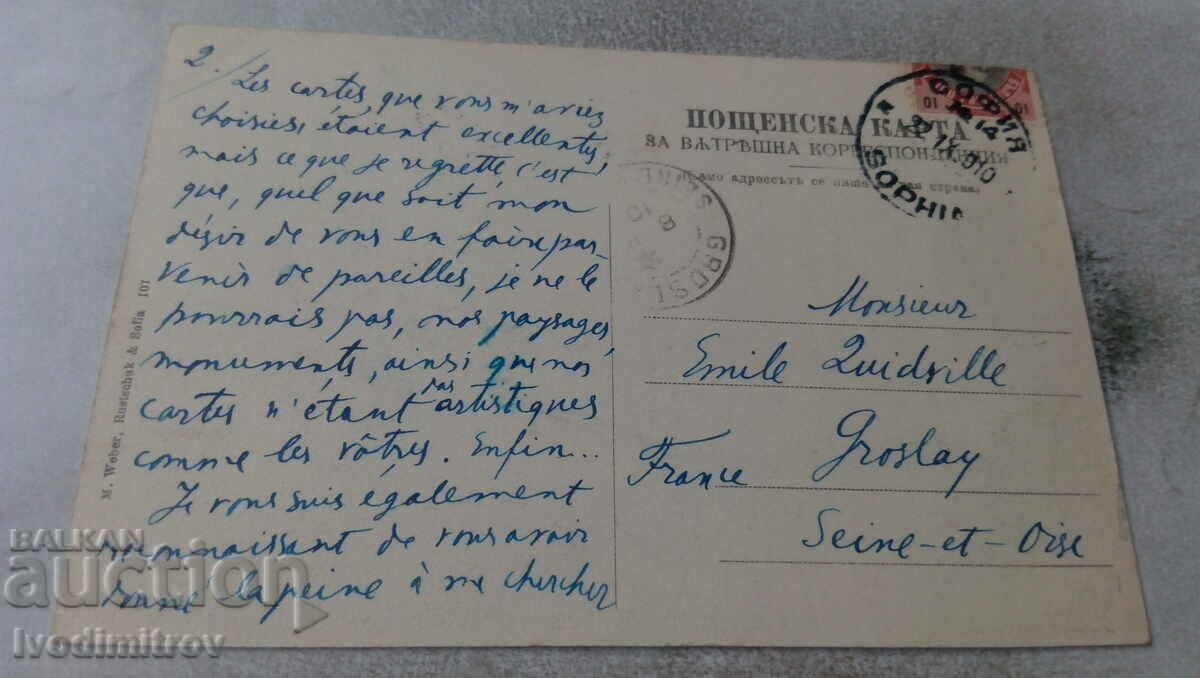 2./ Les cartes, que vous m'aviez
choisies étaient excellentes,
mais ce que je regrette c'est
que, quel que soit mon
désir de vous en faire par-
venir de pareilles, je ne le
pourrais pas, nos paysages,
monuments, ainsi que nos
cartes n'étant pas artistiques
comme les vôtres. Enfin...
Je vous suis également
reconnaissant de vous avoir
donné la peine à me chercher
M. Weber, Rustschuk & Sofia 107
ПОЩЕНСКА КАРТА
ЗА ВѪТРѢШНА КОРРЕСПОНДЕНЦИЯ
адрессътъ се пише
СОФИЯ
IX 910
SOPHIA
10
10
GROSL
Monsieur
Emile Quidville
Groslay
France
Seine-et-Oise
BALKAN
auction
Ivodimitrov